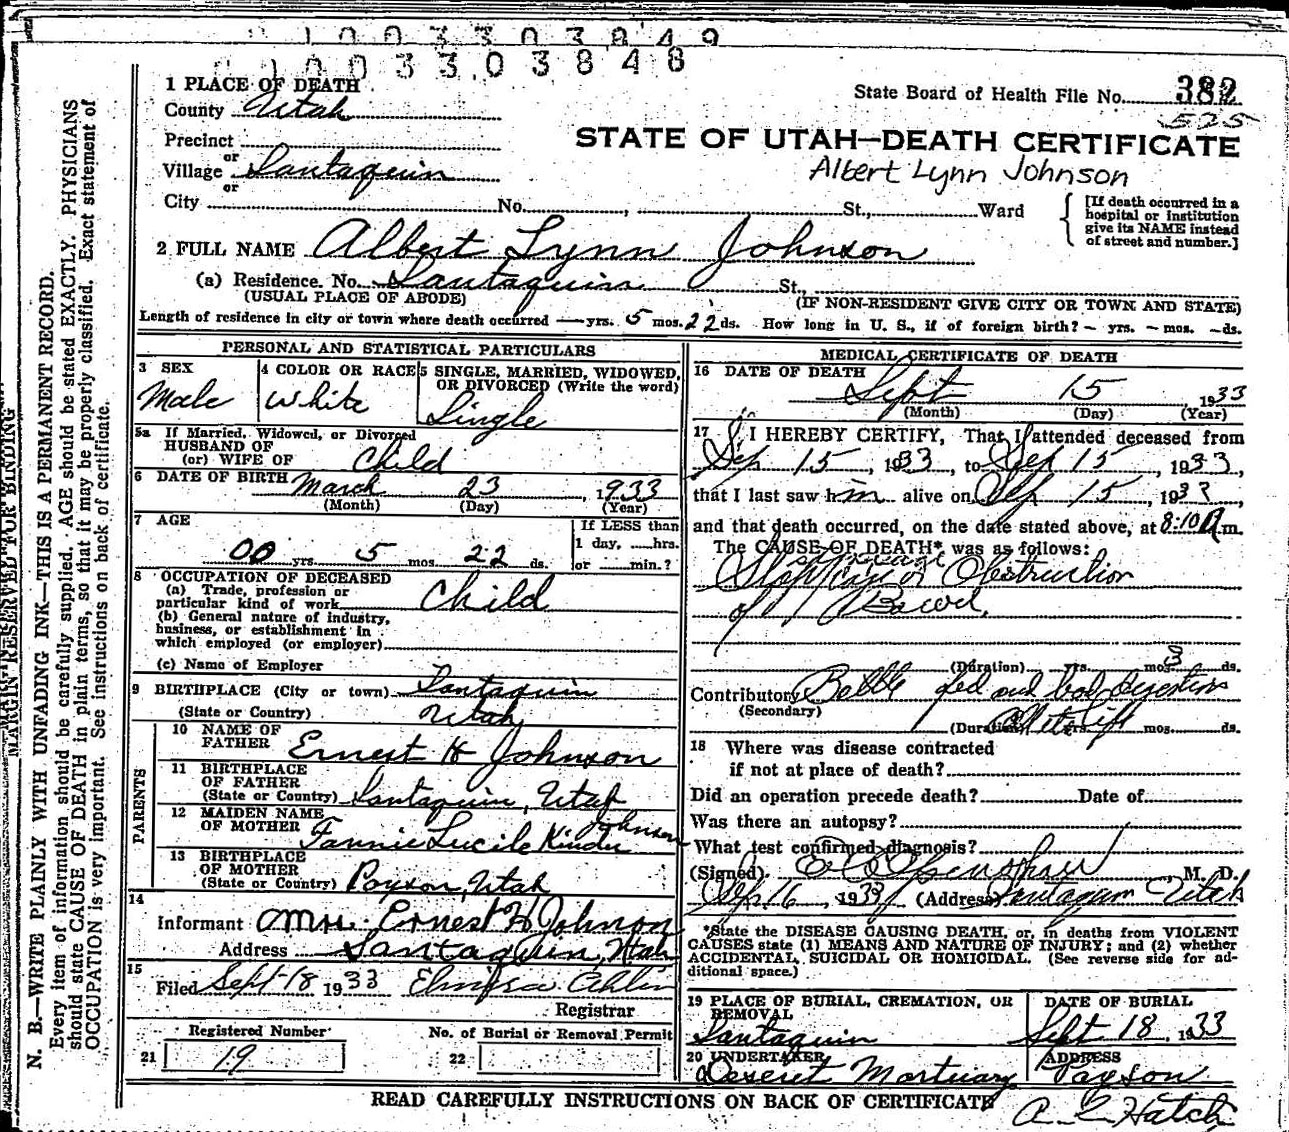 1003303849
1003303848
1 PLACE OF DEATH
County Utah
State Board of Health File No. 382
525
Precinct
or
Village Santaquin
or
STATE OF UTAH—DEATH CERTIFICATE
Albert Lynn Johnson
City No. , St., Ward
[If death occurred in a
hospital or institution
give its NAME instead
of street and number.]
2 FULL NAME Albert Lynn Johnson
(a) Residence. No. Santaquin St.,
(USUAL PLACE OF ABODE) (IF NON-RESIDENT GIVE CITY OR TOWN AND STATE)
Length of residence in city or town where death occurred — yrs. 5 mos. 22 ds. How long in U. S., if of foreign birth? – yrs. – mos. – ds.
PERSONAL AND STATISTICAL PARTICULARS
3 SEX
Male
4 COLOR OR RACE
White
5 SINGLE, MARRIED, WIDOWED,
OR DIVORCED (Write the word)
Single
5a If Married, Widowed, or Divorced
HUSBAND OF
(or) WIFE OF Child
6 DATE OF BIRTH March 23, 1933
(Month) (Day) (Year)
7 AGE
00 yrs. 5 mos. 22 ds.
If LESS than
1 day, hrs.
or min.?
8 OCCUPATION OF DECEASED
(a) Trade, profession or
particular kind of work Child
(b) General nature of industry,
business, or establishment in
which employed (or employer)
(c) Name of Employer
9 BIRTHPLACE (City or town) Santaquin
(State or Country) Utah
PARENTS
10 NAME OF
FATHER Ernest H Johnson
11 BIRTHPLACE
OF FATHER
(State or Country) Santaquin, Utah
12 MAIDEN NAME
OF MOTHER Fannie Lucile Kinder Johnson
13 BIRTHPLACE
OF MOTHER
(State or Country) Payson, Utah
14
Informant Mrs. Ernest H Johnson
Address Santaquin, Utah
15
Filed Sept 18 1933
Registrar
Registered Number
21 19
No. of Burial or Removal Permit
22
MEDICAL CERTIFICATE OF DEATH
16 DATE OF DEATH
Sept 15, 1933
(Month) (Day) (Year)
17 I HEREBY CERTIFY, That I attended deceased from
Sep 15, 1933, to Sep 15, 1933,
that I last saw him alive on Sep 15, 1933,
and that death occurred, on the date stated above, at 8:10 A m.
The CAUSE OF DEATH* was as follows:
or Obstruction
of Bowel.
(Duration) yrs. mos. 3 ds.
Contributory Bottle fed and bad digestion
(Secondary)
(Duration) mos. ds.
18 Where was disease contracted
if not at place of death?
Did an operation precede death? Date of
Was there an autopsy?
What test confirmed diagnosis?
(Signed) , M. D.
Sep 16, 1933 (Address) Santaquin Utah
*State the DISEASE CAUSING DEATH, or, in deaths from VIOLENT
CAUSES state (1) MEANS AND NATURE OF INJURY; and (2) whether
ACCIDENTAL, SUICIDAL OR HOMICIDAL. (See reverse side for ad-
ditional space.)
19 PLACE OF BURIAL, CREMATION, OR
REMOVAL
Santaquin
DATE OF BURIAL
Sept 18, 1933
20 UNDERTAKER
Deseret Mortuary
ADDRESS
Payson
READ CAREFULLY INSTRUCTIONS ON BACK OF CERTIFICATE
A. L. Hatch
MARGIN RESERVED FOR BINDING
N. B.—WRITE PLAINLY WITH UNFADING INK—THIS IS A PERMANENT RECORD.
Every item of information should be carefully supplied. AGE should be stated EXACTLY. PHYSICIANS
should state CAUSE OF DEATH in plain terms, so that it may be properly classified. Exact statement of
OCCUPATION is very important. See instructions on back of certificate.